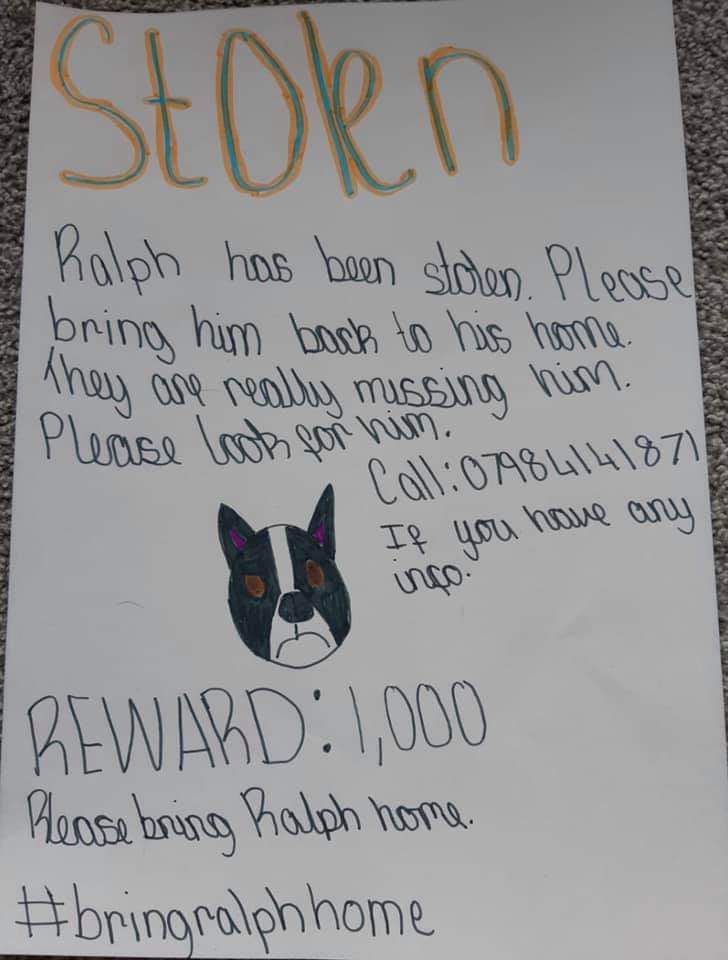 Stolen
Ralph has been stolen. Please
bring him back to his home.
They are really missing him.
Please look for him.
Call: 07984141871
If you have any
info.
REWARD: 1,000
Please bring Ralph home.
#bringralphhome